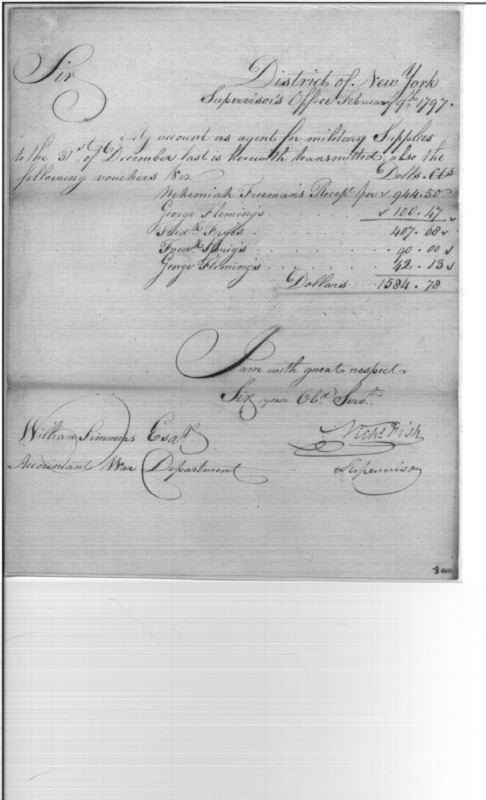 Sir
District of New York
Supervisor's Office February 9th 1797.
My account as agent for military Supplies
to the 31st of December last is herewith transmitted; also the
following vouchers Viz
Dolls. Cts
Nehemiah Freeman's Receipt for 944.50
George Fleming's 100.47
Fredk 407.68
Fredk 90.00
George Fleming's 42.13
Dollars 1584.78
I am with great respect
Sir your Obd. Servt.
William Simmons Esqr
Nichs Fish
Accountant War Department
Supervisor